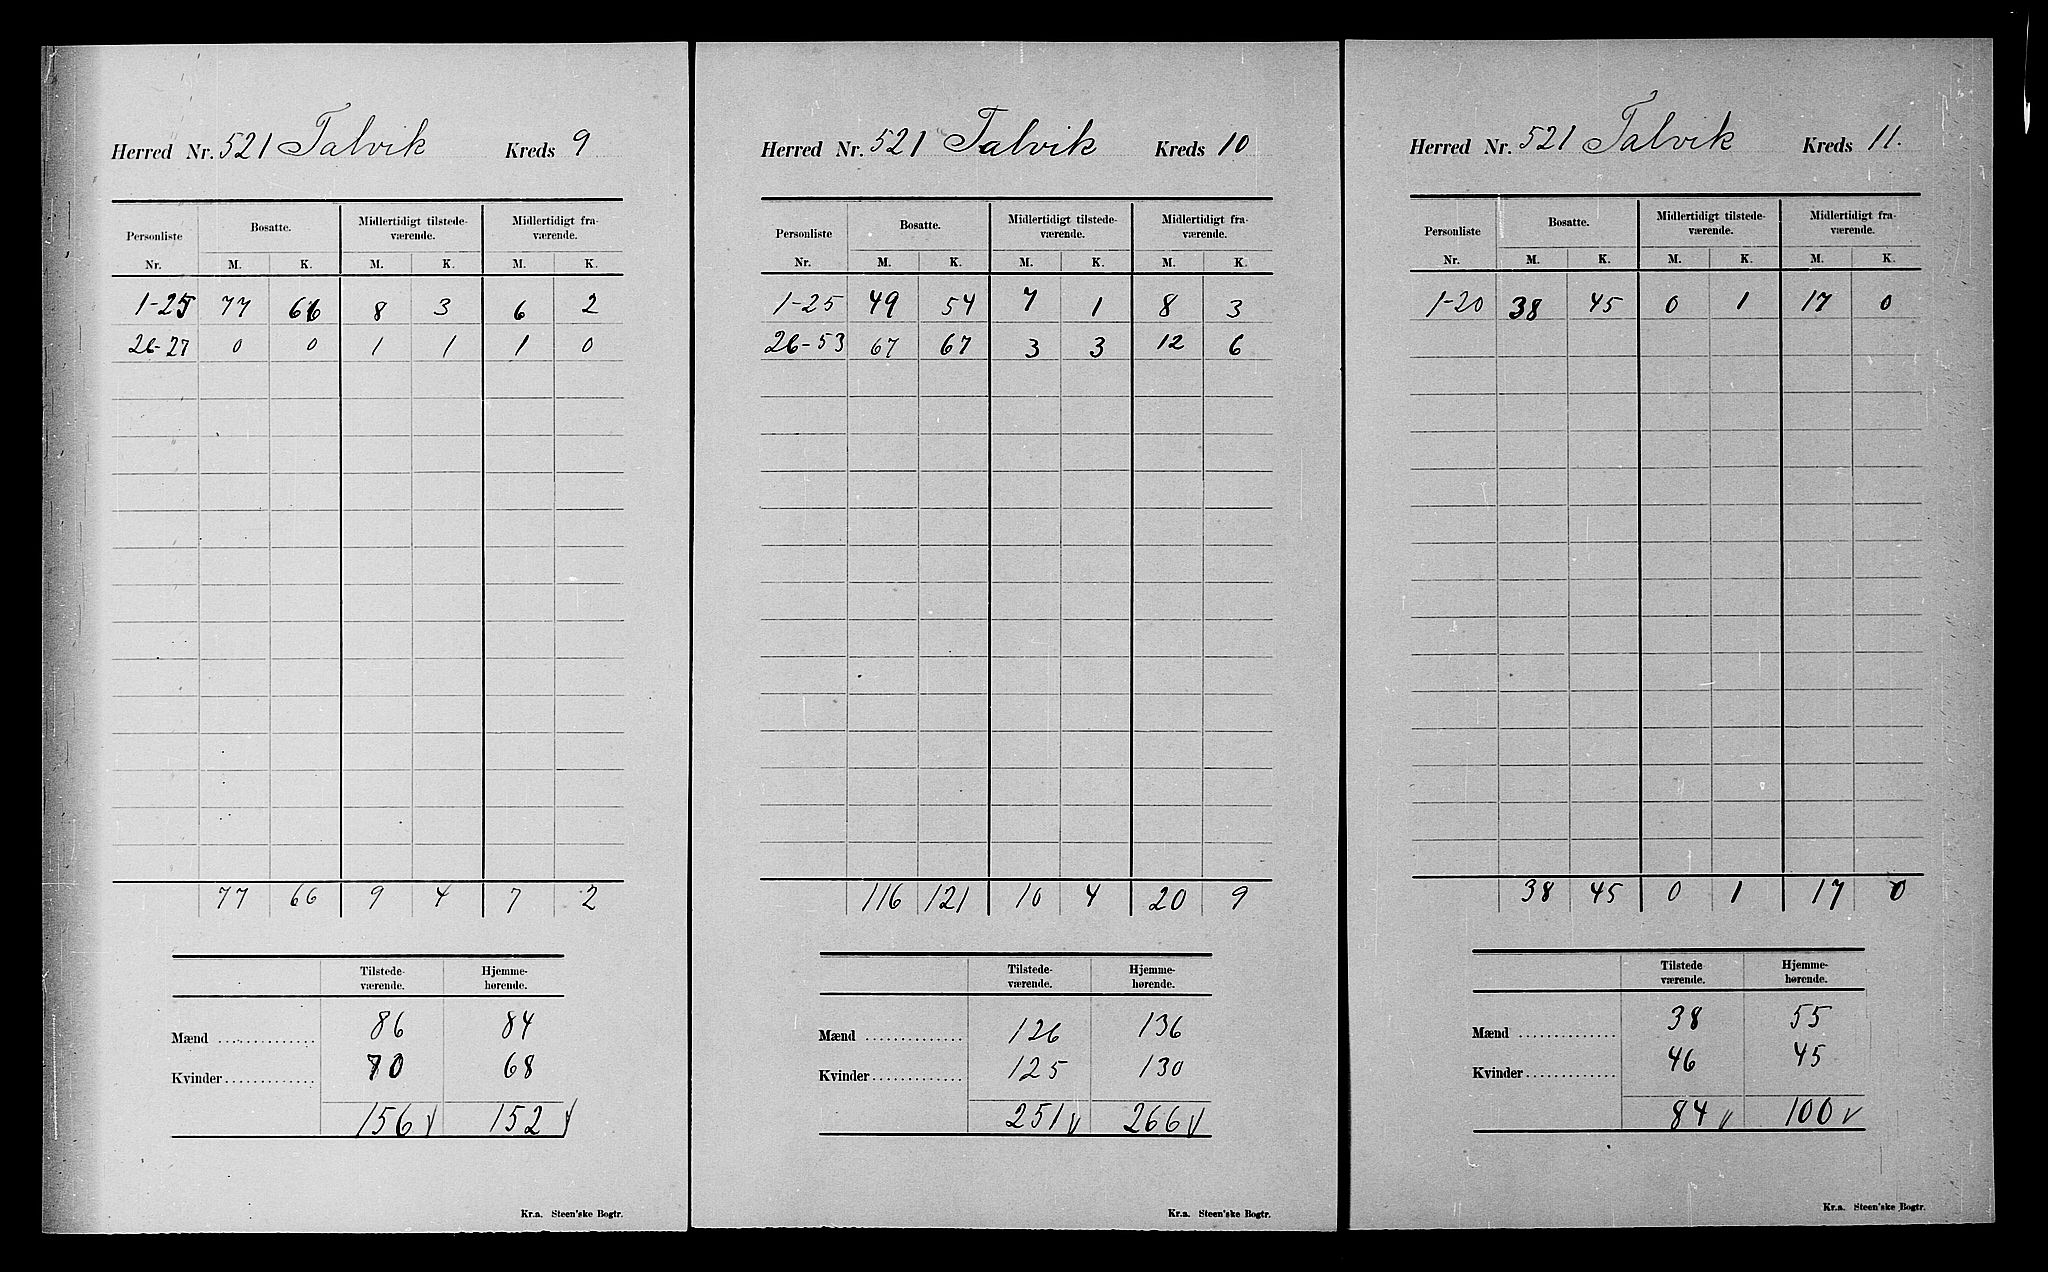 Herred Nr. 521 Talvik Kreds 9
Personliste Bosatte. Midlertidigt tilstede- Midlertidigt fra-
værende. værende.
Nr. M. K. M. K. M. K.
1-25 77 66 8 3 6 2
26-27 0 0 1 1 1 0
77 66 9 4 7 2
Tilstede- Hjemme-
værende. hørende.
Mænd 86 84
Kvinder 70 68
156 √ 152 √
Kr.a. Steen'ske Bogtr.
Herred Nr. 521 Talvik Kreds 10
Personliste Bosatte. Midlertidigt tilstede- Midlertidigt fra-
værende. værende.
Nr. M. K. M. K. M. K.
1-25 49 54 7 1 8 3
26-53 67 67 3 3 12 6
116 121 10 4 20 9
Tilstede- Hjemme-
værende. hørende.
Mænd 126 136
Kvinder 125 130
251 √ 266 √
Kr.a. Steen'ske Bogtr.
Herred Nr. 521 Talvik Kreds 11.
Personliste Bosatte. Midlertidigt tilstede- Midlertidigt fra-
værende. værende.
Nr. M. K. M. K. M. K.
1-20 38 45 0 1 17 0
38 45 0 1 17 0
Tilstede- Hjemme-
værende. hørende.
Mænd 38 55
Kvinder 46 45
84 √ 100 √
Kr.a. Steen'ske Bogtr.